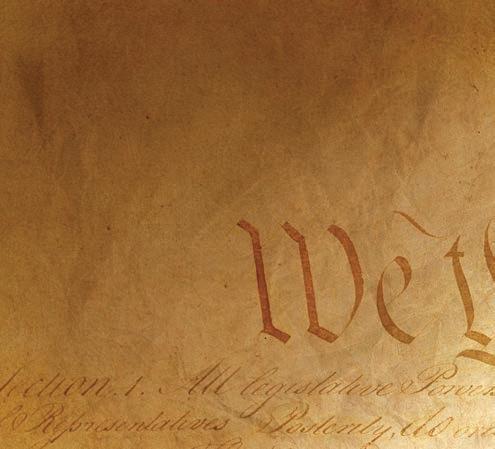 We t
Section. 1. All legislative Powers
& Representatives Posterity, do or